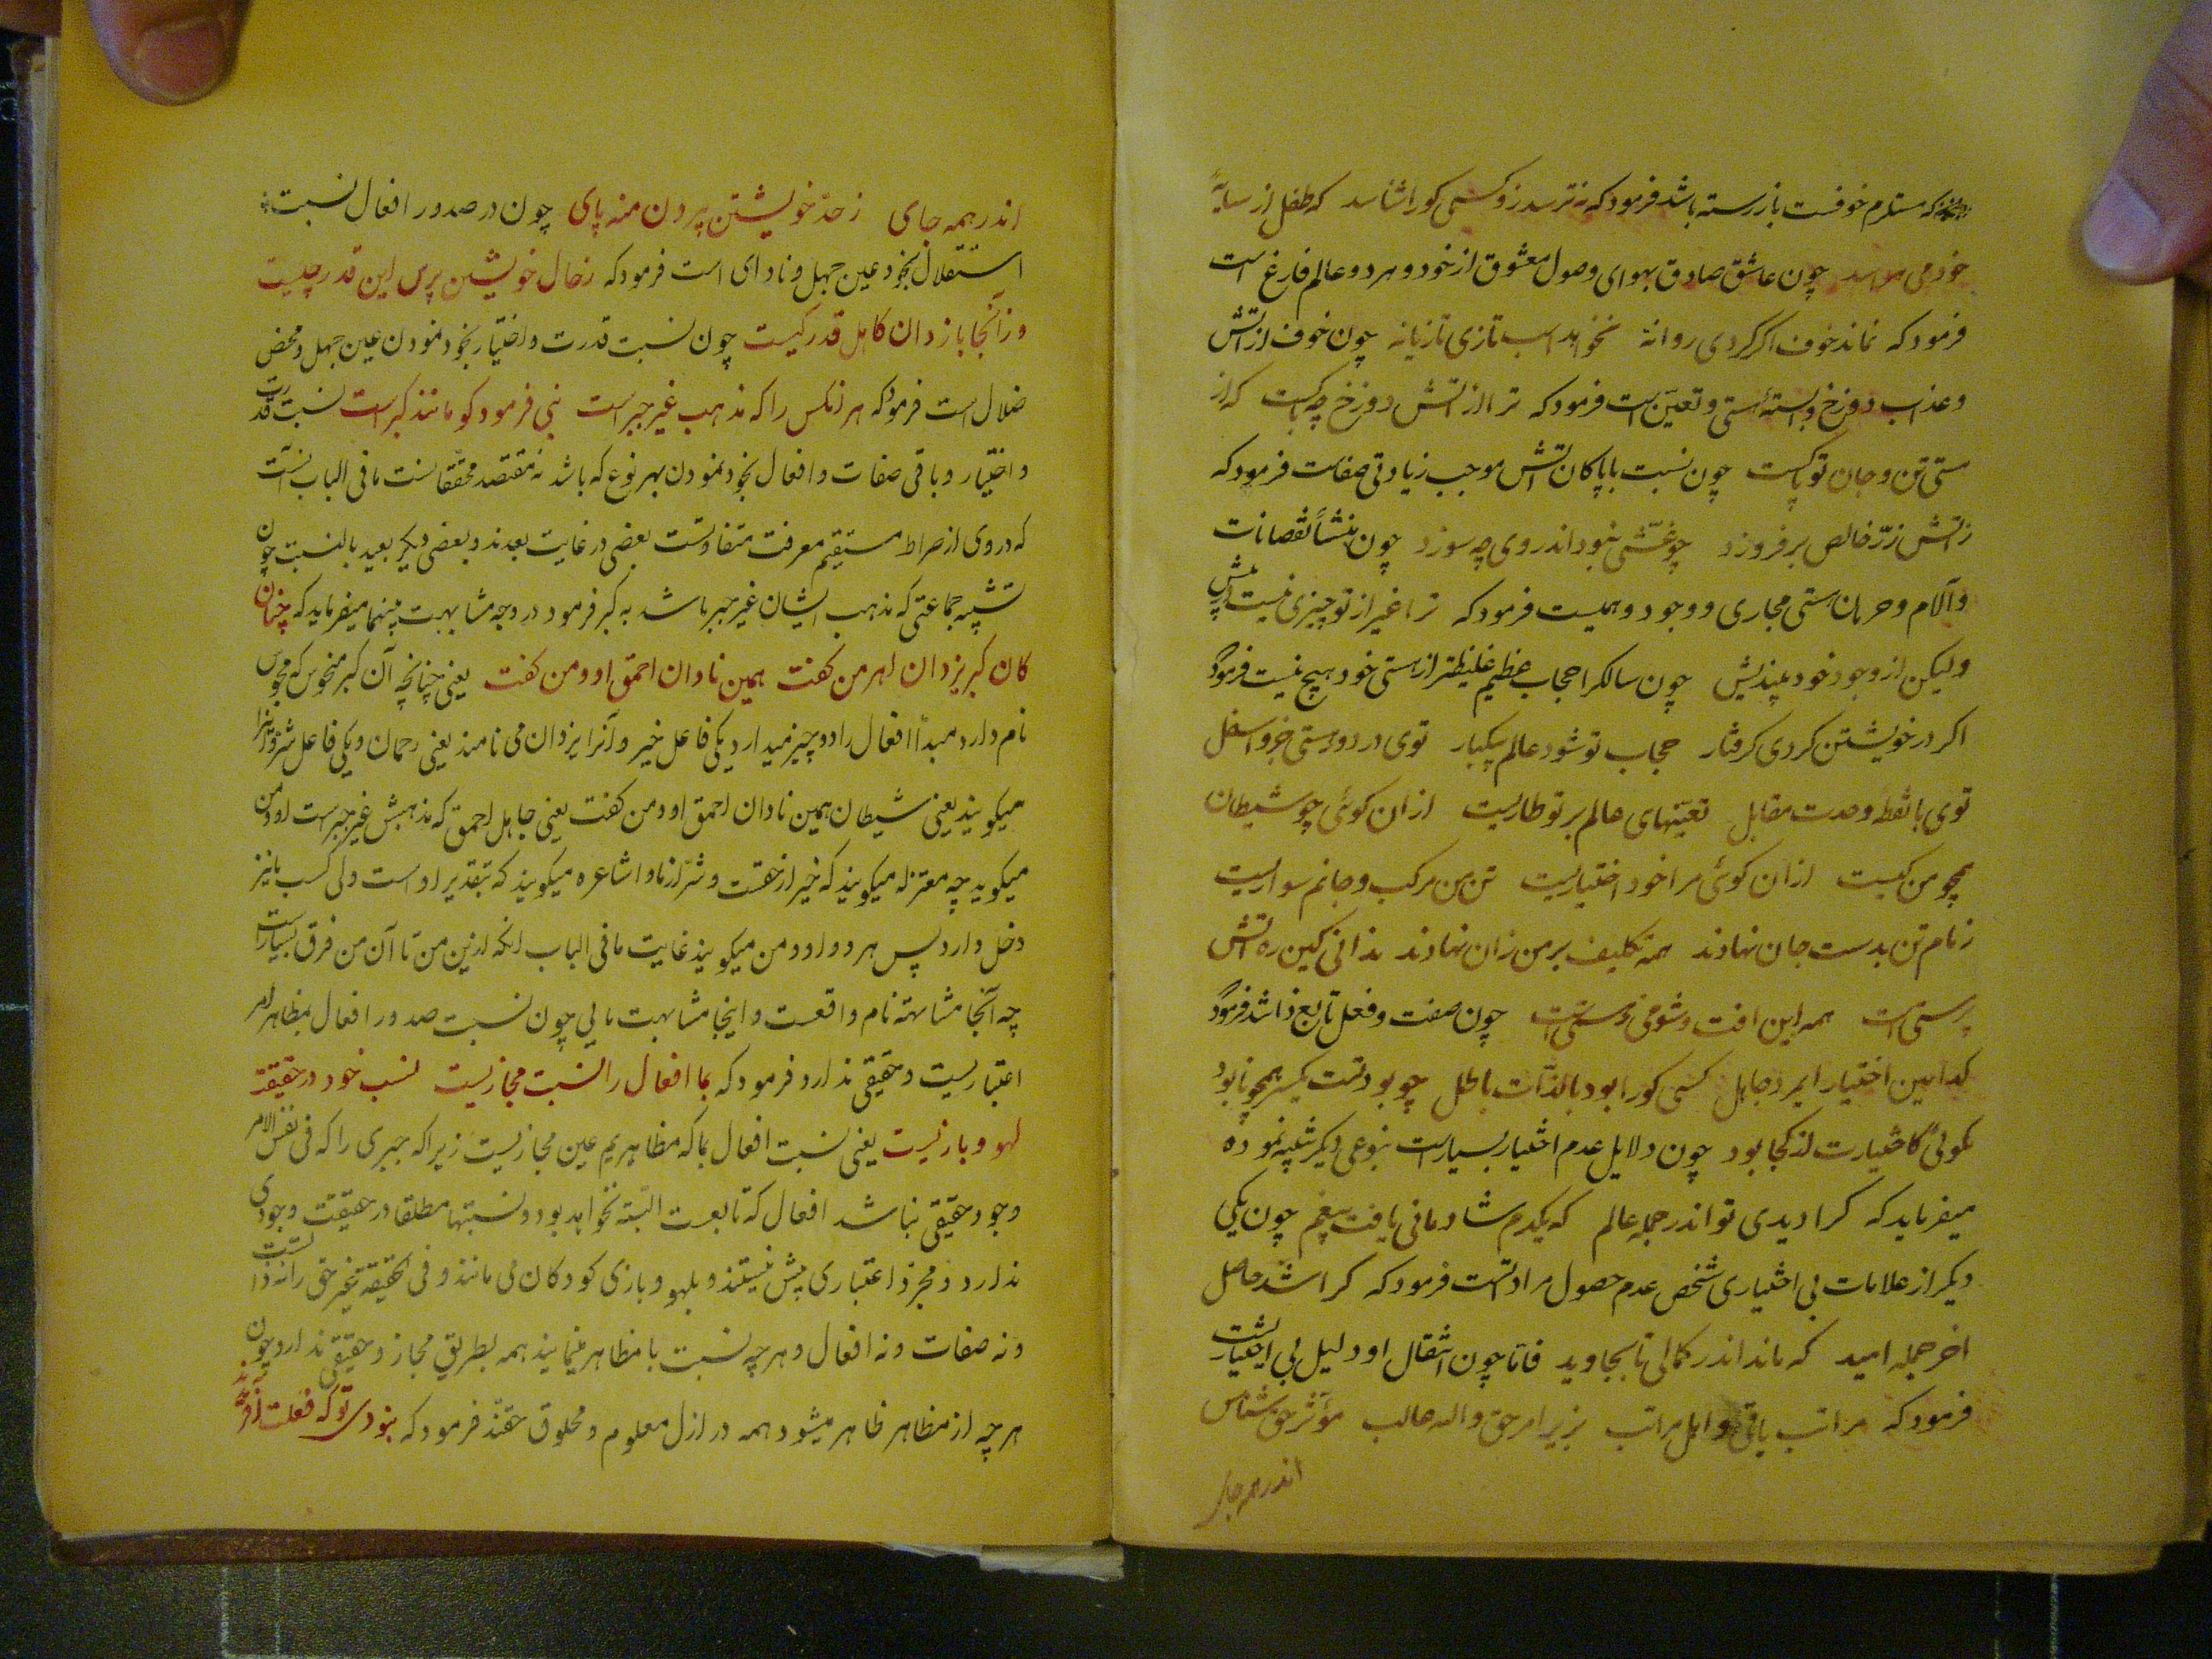 که مستلزم خوفست باز رسته باشد فرمود که نترسد زو کسی کورا شناسد که طفل از سایهٔ
خود می هراسد چون عاشق صادق بهوای وصول معشوق از خود و هر دو عالم فارغ است
فرمود که نماند خوف اگر گردی روانه نخواهد اسب تازی تازیانه چون خوف از آتش
و عذاب دوزخ وابستهٔ هستی و تعین است فرمود که ترا از آتش دوزخ چه باکست که از
هستی تن و جان تو پاکست چون نسبت با پاکان آتش موجب زیادتی صفاست فرمود که
ز آتش زرّ خالص برفروزد چو غشّی نبود اندر وی چه سوزد چون منشأ نقصانات
و آلام و حرمان هستی مجازی و وجود وهمیست فرمود که ترا غیر از تو چیزی نیست در پیش
ولیکن از وجود خود بیندیش چون سالک را حجاب عظیم غلیظتر از هستی خود هیچ نیست فرمود که
اگر در خویشتن گردی گرفتار حجاب تو شود عالم بیکبار توی در دور هستی جزو اسفل
توی با نقطه وحدت مقابل تعینهای عالم بر تو طاریست از آن گوئی چو شیطان
همچو من کیست از آن گوئی مرا خود اختیاریست تن من مرکب و جانم سواریست
زمام تن بدست جان نهادند همه تکلیف بر من زان نهادند ندانی کین ره آتش
پرستی است همه این آفت و شومی ز هستی است چون صفت و فعل تابع ذاتند فرمود که
کدامین اختیار ای مرد جاهل کسی کو را بود بالذات باطل چو بود تست یکسر همچو نابود
نگوئی کاختیارت از کجا بود چون دلایل عدم اختیار بسیار است بنوعی دیگر تنبیه نموده
میفرماید که کرا دیدی تو اندر جمله عالم که یکدم شادمانی یافت بیغم چون یکی
دیگر از علامات بی اختیاری شخص عدم حصول مرادتست فرمود که کرا شد حاصل
آخر جمله امید که ماند اندر کمالی تا بجاوید فاما چون انتقال او دلیل بی اختیاریست
فرمود که مراتب باقی و اهل مراتب بزیر امر حق والله غالب مؤثر حق شناس
اندر همه جای
اندر همه جای ز حدّ خویشتن بیرون منه پای چون در صدور افعال نسبت
استقلال بخود عین جهل و نادانی است فرمود که ز حال خویشتن پرس این قدر چیست
وز آنجا باز دان کاهل قدر کیست چون نسبت قدرت و اختیار بخود نمودن عین جهل و محض
ضلال است فرمود که هر آنکس را که مذهب غیر جبر است نبی فرمود کو مانند گبر است نسبت قدرت
و اختیار و باقی صفات و افعال بخود نمودن بهر نوع که باشد نه معتقد محققانست ما فی الباب آنست
که دوری از صراط مستقیم معرفت متفاوتست بعضی در غایت بعدند و بعضی دیگر بعید بالنسبت چون
تشبیه جماعتی که مذهب ایشان غیر جبر باشد به گبر فرمود در وجه مشابهت بینهما میفرماید که چنان
کان گبر یزدان اهرمن گفت همین نادان احمق او و من گفت یعنی چنانچه آن گبر منحوس که مجوس
نام دارد مبدأ افعال را دو چیز میدارد یکی فاعل خیر و آنرا یزدان می نامند یعنی رحمان و یکی فاعل شرّ و او را اهرمن
میگویند یعنی شیطان همین نادان احمق او و من گفت یعنی جاهل احمق که مذهبش غیر جبرست او و من
میگوید چه معتزله میگویند که خیر از حقست و شرّ از ما و اشاعره میگویند که بتقدیر اوست ولی کسب ما نیز
دخل دارد پس هر دو او و من میگویند غایت ما فی الباب آنکه ازین من تا آن من فرق بسیار است
چه آنجا مشابهتهٔ تام واقعست و اینجا مشابهت مایی چون نسبت صدور افعال بمظاهر امر
اعتباریست و حقیقی ندارد فرمود که بما افعال را نسبت مجازیست نسب خود در حقیقت
لهو و بازیست یعنی نسبت افعال بما که مظاهریم عین مجازیست زیرا که چیزی را که فی نفس الامر
وجود حقیقی نباشد افعال که تابعست البته نخواهد بود و نسبتها مطلقا در حقیقت وجودی
ندارد و مجرّد اعتباری بیش نیستند و بلهو و بازی کودکان می مانند و فی الحقیقه بغیر حق را نه ذاتست
و نه صفات و نه افعال و هر چه نسبت با مظاهر مینمایند همه بطریق مجاز و حقیقی ندارد چون
هر چه از مظاهر ظاهر میشود همه در ازل معلوم و مخلوق حقند فرمود که نبودی تو که فعلت آفریدند